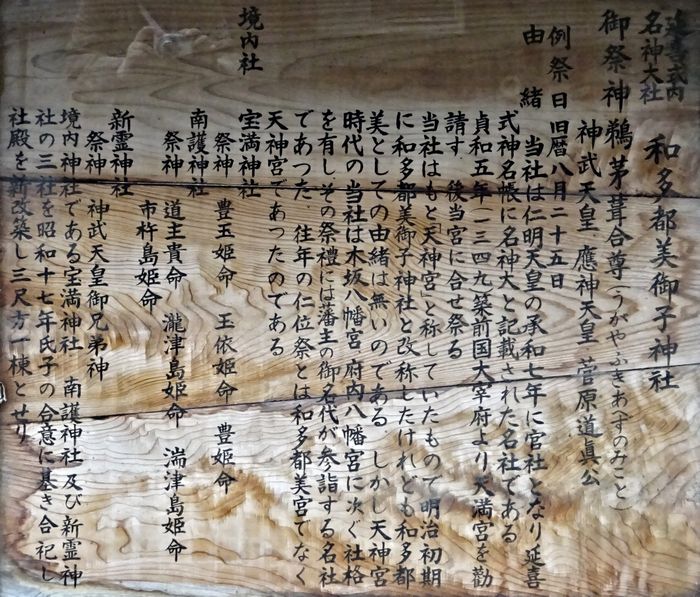 延喜式内
名神大社
和多都美御子神社
御祭神 鵜茅葺合尊(うがやふきあへずのみこと)
神武天皇 應神天皇 菅原道眞公
例祭日 旧暦八月二十五日
由緒
当社は仁明天皇の承和七年に官社となり延喜
式神名帳に名神大と記載された名社である
貞和五年一三四九築前国大宰府より天満宮を勸
請す 後当宮に合せ祭る
当社はもと「天神宮」と称していたもので明治初期
に和多都美御子神社と改称したけれども和多都
美としての由緒は無いのである しかし天神宮
時代の当社は木坂八幡宮 府内八幡宮に次ぐ社格
を有し、その祭禮には藩主の御名代が参詣する名社
であつた 往年の仁位祭とは和多都美宮でなく
天神宮であつたのである
境内社
宝満神社
祭神 豊玉姫命 玉依姫命 豊姫命
南護神社
祭神 道主貴命 瀧津島姫命 湍津島姫命
市杵島姫命
新霊神社
祭神 神武天皇御兄弟神
境内神社である宝満神社 南護神社及び新霊神
社の三社を昭和十七年氏子の合意に基き合祀し
社殿を新改築し三尺方一棟とせり